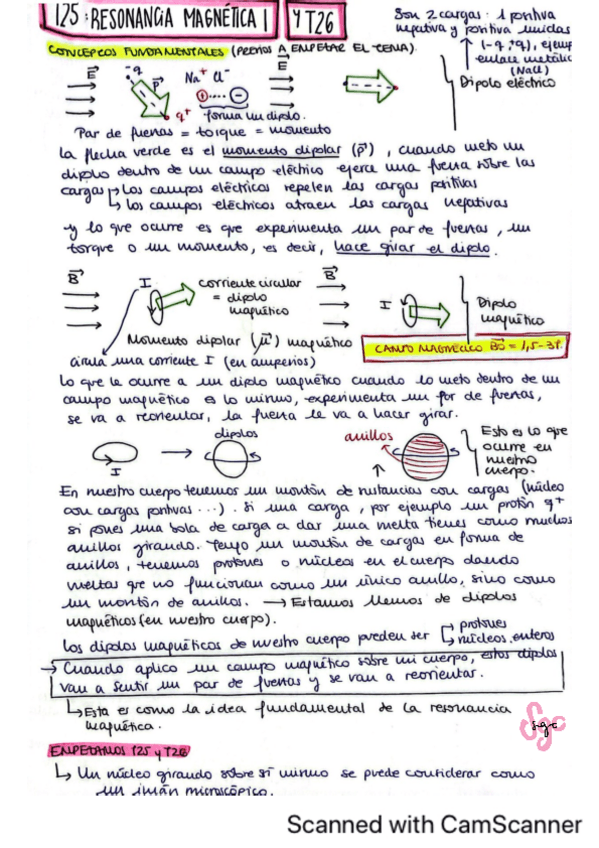 T25: RESONANCIA MAGNÉTICA I Y T26
Son 2 cargas: 1 positiva
negativa y positiva unidas
(-q, +q), ejemp
enlace metálic
(NaCl)
Dipolo eléctrico
CONCEPTOS FUNDAMENTALES (PREVIOS A EMPEZAR EL TEMA).
E -q p Na+ Cl- E
q+ forma un dipolo.
Par de fuerzas = torque = momento
la flecha verde es el momento dipolar (p), cuando meto un
dipolo dentro de un campo eléctrico ejerce una fuerza sobre las
cargas → los campos eléctricos repelen las cargas positivas
↳ los campos eléctricos atraen las cargas negativas
y lo que ocurre es que experimenta un par de fuerzas, un
torque o un momento, es decir, hace girar el dipolo.
B I corriente circular B
= dipolo
magnético
I Dipolo
magnético
Momento dipolar (μ) magnético
CAMPO MAGNÉTICO B0 = 1,5-3T.
circula una corriente I (en amperios)
Lo que le ocurre a un dipolo magnético cuando lo meto dentro de un
campo magnético es lo mismo, experimenta un par de fuerzas,
se va a reorientar, la fuerza le va a hacer girar.
I dipolos anillos
Esto es lo que
ocurre en
nuestro
cuerpo.
En nuestro cuerpo tenemos un montón de sustancias con cargas (núcleo
con cargas positivas...). Si una carga, por ejemplo un protón q+
si pones una bola de carga a dar una vuelta tienes como muchos
anillos girando. Tengo un montón de cargas en forma de
anillos, tenemos protones o núcleos en el cuerpo dando
vueltas que no funcionan como un único anillo, sino como
un montón de anillos. → Estamos llenos de dipolos
magnéticos (en nuestro cuerpo).
Los dipolos magnéticos de nuestro cuerpo pueden ser → protones
↳ núcleos enteros
→ Cuando aplico un campo magnético sobre mi cuerpo, estos dipolos
van a sentir un par de fuerzas y se van a reorientar.
↳ Esta es como la idea fundamental de la resonancia
magnética.
sgc
EMPEZAMOS T25 y T26
↳ Un núcleo girando sobre sí mismo se puede considerar como
un imán microscópico.
Scanned with CamScanner